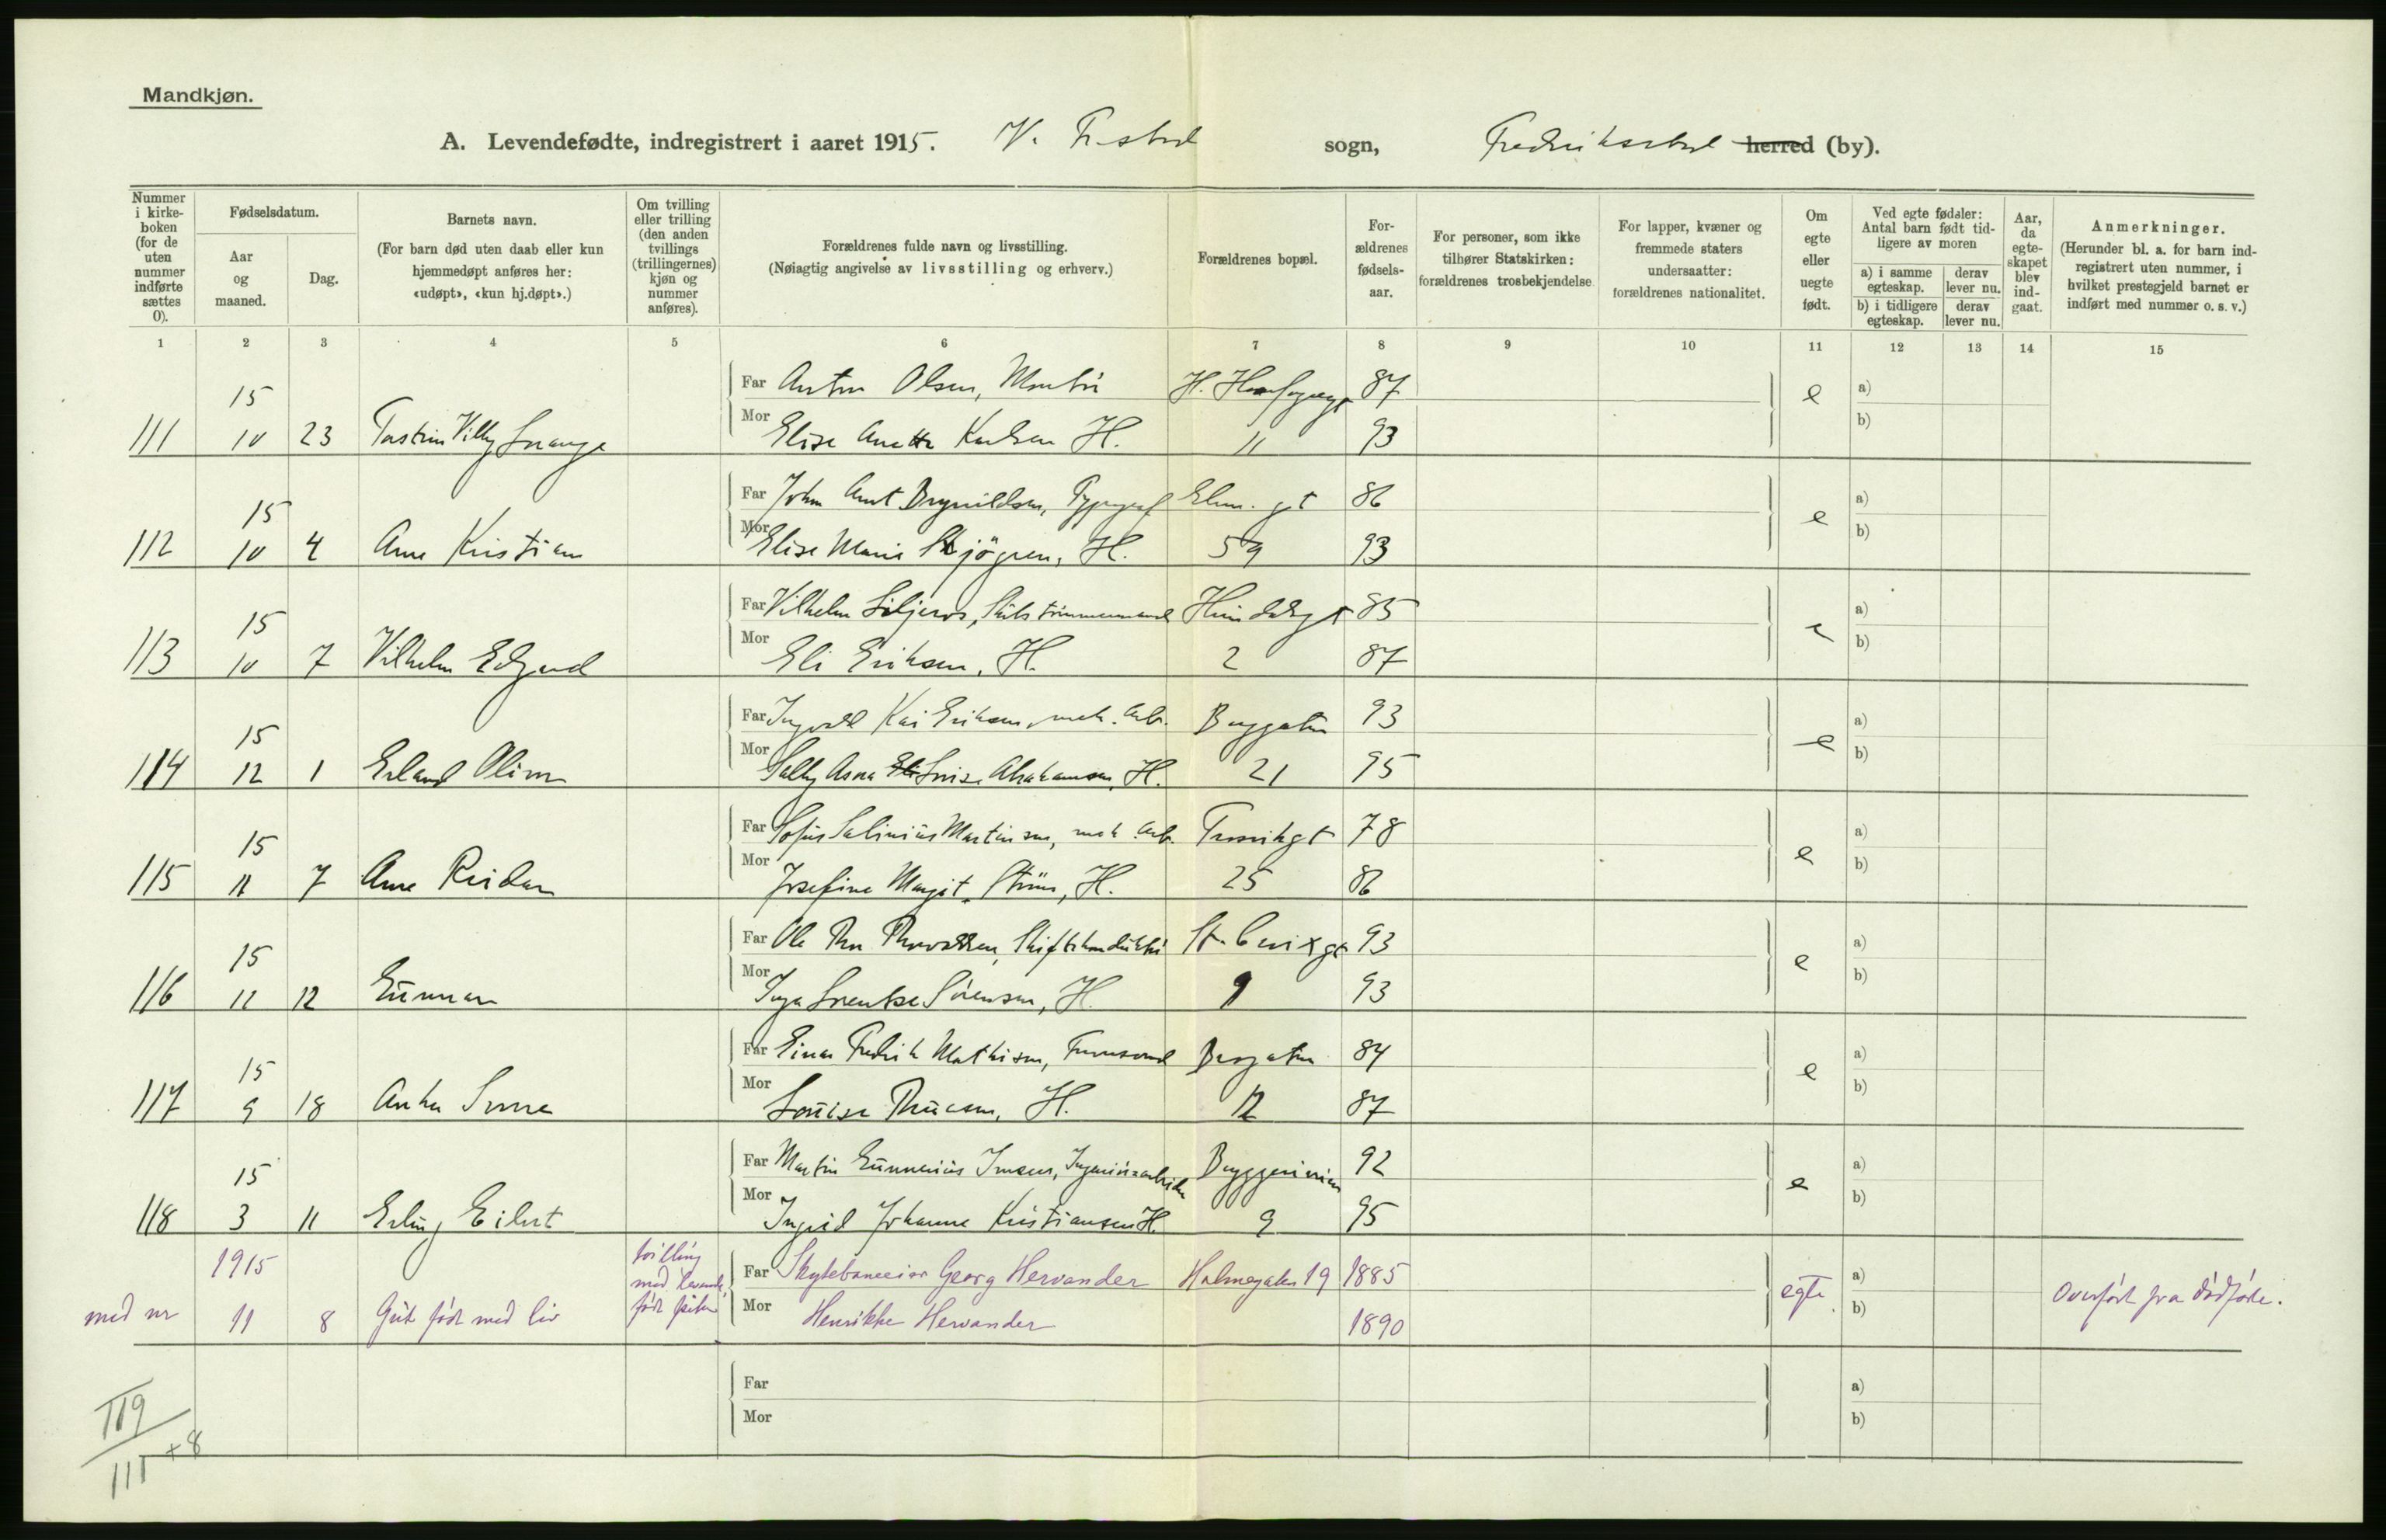 Mandkjøn.
A. Levendefødte, indregistrert i aaret 1915. V. Fr.stad sogn, Fredrikstad herred (by).
Nummer i kirke-boken (for de uten nummer indførte sættes 0).
Fødselsdatum.
Aar og maaned.
Dag.
Barnets navn.
(For barn død uten daab eller kun hjemmedøpt anføres her: «udøpt», «kun hj.døpt».)
Om tvilling eller trilling (den anden tvillings (trillingernes) kjøn og nummer anføres).
Forældrenes fulde navn og livsstilling.
(Nøiagtig angivelse av livsstilling og erhverv.)
Forældrenes bopæl.
For-ældrenes fødsels-aar.
For personer, som ikke tilhører Statskirken: forældrenes trosbekjendelse
For lapper, kvæner og fremmede staters undersaatter: forældrenes nationalitet.
Om egte eller uegte født.
Ved egte fødsler: Antal barn født tid-ligere av moren
a) i samme egteskap. derav lever nu.
b) i tidligere egteskap. derav lever nu.
Aar, da egte-skapet blev ind-gaat.
Anmerkninger.
(Herunder bl. a. for barn ind-registrert uten nummer, i hvilket prestegjeld barnet er indført med nummer o. s. v.)
1 2 3 4 5 6 7 8 9 10 11 12 13 14 15
15 Far Anton Olsen, Montør 87 e a)
111 10 23 Willy Mor Elise Anette Karlsen H. 11 93 b)
15 Far John Arnt Brynildsen, Typograf gt 86 e a)
112 10 4 Arne Kristian Mor Elise Marie Sjögren, H. 59 93 b)
15 Far Vilhelm Siljeros, 85 e a)
113 10 7 Vilhelm Edgard Mor Eli Eriksen, H. 2 87 b)
15 Far Ingvald Kai Eriksen, mek. Arb. Bryggatn 93 e a)
114 12 1 Erland Mor Sally Asna Luise Abrahamsen, H. 21 95 b)
15 Far Sofus Salinius Martinsen, mek Arb. 78 e a)
115 11 7 Arne Reidar Mor Josefine Margit Strøm, H. 25 86 b)
15 Far Ole Thorvaldsen, Skiftekonduktør St. Croixgt 93 e a)
116 11 12 Gunnar Mor Inga Lorentse Sørensen, H. 9 93 b)
15 Far Einar Fredrik Mathisen, 84 e a)
117 9 18 Anker Mor Louise H. 12 87 b)
15 Far Martin Gunnerius Bryggeriveien 92 e a)
118 3 11 Erling Eilert Mor Ingrid Johanne Kristiansen H. 9 95 b)
1915 tvilling med levende født pike Far Georg Hervander Holmegaten 19 1885 egte a)
med nr 11 8 Gut født med liv Mor Henrikke Hervander 1890 b) Overført fra dødfødte.
Far a)
Mor b)
119
111 + 8